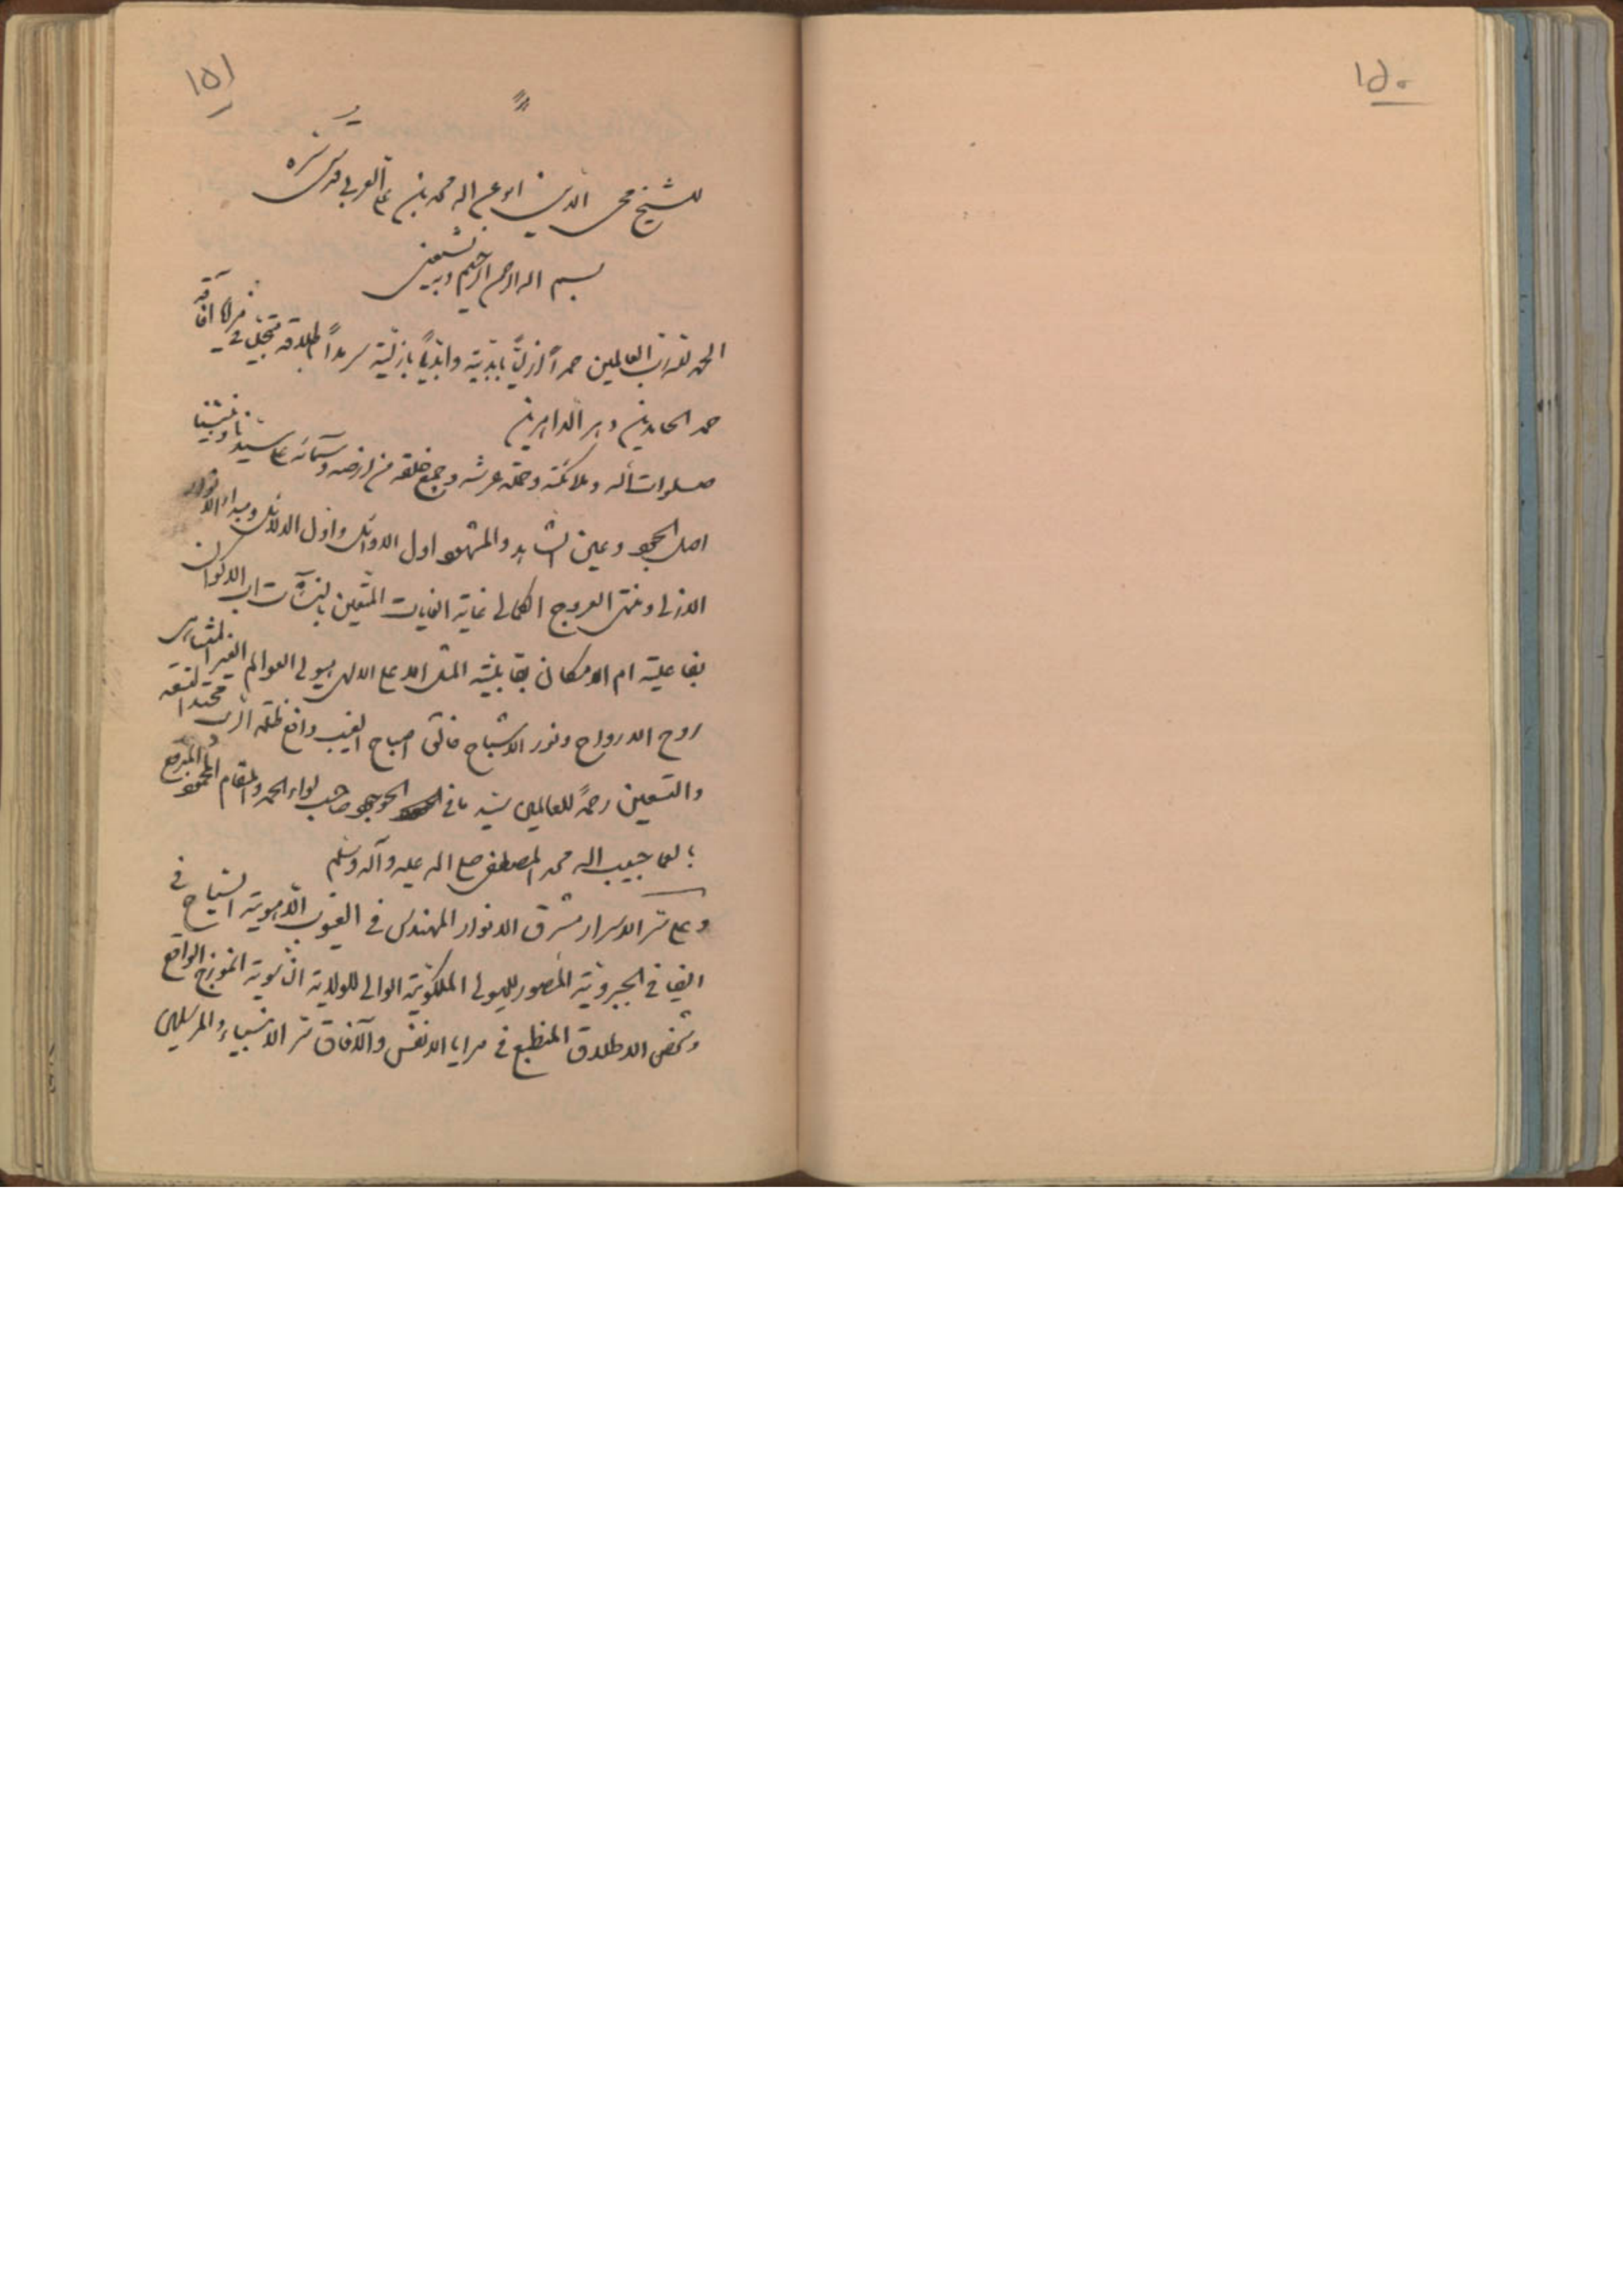 ١٥٠
١٥١
للشيخ محى الدين ابو عبد الله محمد بن على العربي قدس سره
بسم الله الرحمن الرحيم وبه نستعين
الحمد لله رب العالمين حمداً ازليًّا بابديته وابديًّا بازليته سرمداً باطلاقه متجليا في مرايا آفاقه
حمد الحامدين دهر الداهرين
صلوات الله وملائكته وحملة عرشه وجميع خلقه من ارضه وسمائه على سيدنا ونبينا
اصل الوجود وعين الشاهد والمشهود اول الاوائل وادل الدلائل ومبداء الانوار
الازلى ومنتهى العروج الكمالى غاية الغايات المتعين بالنشآت اب الاكوان
بفاعليته ام الامكان بقابليته المثل الاعلى الالهى هيولى العوالم الغير المتناهى
روح الارواح ونور الاشباح فالق اصباح الغيب دافع ظلمة الريب محتد التسعة
والتسعين رحمة للعالمين سيدنا في الوجود صاحب لواء الحمد والمقام المحمود المبرقع
بالعما حبيب الله محمد المصطفى صلى الله عليه وآله وسلم
وعلى سر الاسرار مشرق الانوار المهندس في الغيوب اللاهوتية السياح في
الفيافى الجبروتية المصور للهيولى الملكوتية الوالى للولاية الناسوتية انموزج الواقع
وشخص الاطلاق المنطبع في مرايا الانفس والآفاق سر الانبياء والمرسلين